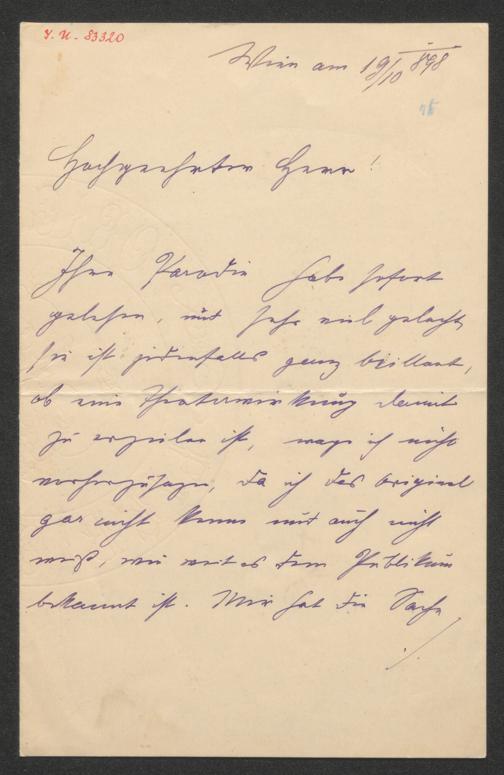 I. N. 83320
Wien am 19/10 898
Hochgeehrter Herr!
Ihre Parodie habe sofort
gelesen, und sehr viel gelacht,
sie ist jedenfalls ganz brillant,
ob eine Theaterwirkung damit
zu erzielen ist, wage ich nicht
vorherzusagen, da ich das Original
gar nicht kenne und auch nicht
weiß, wie weit es dem Publikum
bekannt ist. Mir hat die Sache
./.